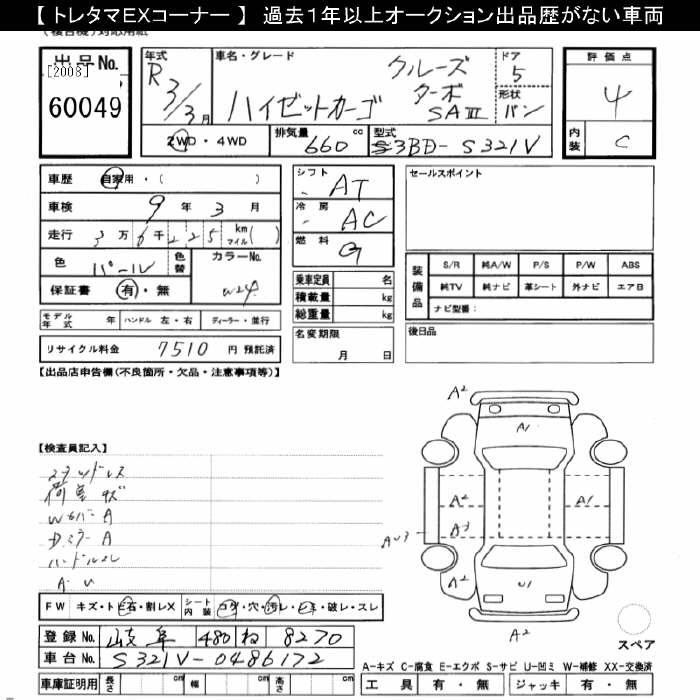 【 トレタマEXコーナー 】 過去１年以上オークション出品歴がない車両
出品No.
[2008]
60049
年式
R 3/3月
車名・グレード
ハイゼットカーゴ
クルーズ
ターボ
SAⅢ
ドア
5
形状
バン
2WD・4WD
排気量
660 cc
型式
3BD-S321V
評価点
4
内装
C
車歴 自家用・( )
車検 9年 3月
走行 3万6千225 km マイル( )
色 パール 色替 カラーNo. W24
保証書 有・無
モデル年式 年 ハンドル 左・右 ディーラー・並行
リサイクル料金 7510 円 預託済
シフト AT
冷房 AC
燃料 G
乗車定員 名
積載量 kg
総重量 kg
名変期限
月 日
セールスポイント
装備品
S/R 純A/W P/S P/W ABS
純TV 純ナビ 革シート 外ナビ エアB
ナビ型番:
後日品
【出品店申告欄(不良箇所・欠品・注意事項等)】
【検査員記入】
荷室キズ
A U
FW キズ・トビ石・割レX シート内装 コゲ・穴・汚レ・破レ・スレ
A2
A1
A2
A3
A1
AU3
A2
U1
A2
スペア
登録No. 岐阜 480 ね 8270
車台No. S321V-0486172
車庫証明用 長さ cm 幅 cm 高さ cm
A-キズ C-腐食 E-エクボ S-サビ U-凹ミ W-補修 XX-交換済
工具 有・無 ジャッキ 有・無